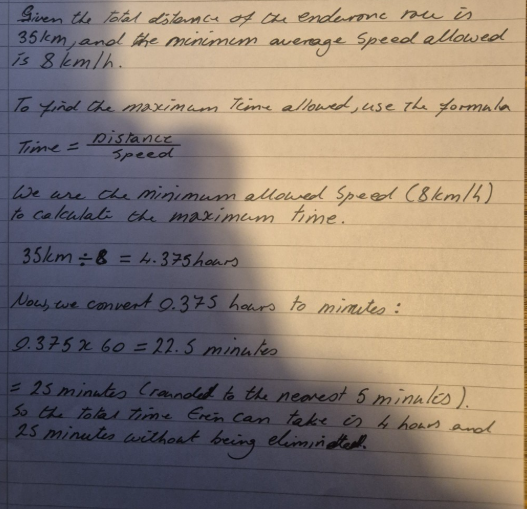 Given the total distance of the endurance race is
35km, and the minimum average speed allowed
is 8km/h.
To find the maximum time allowed, use the formula
Time = Distance
Speed
We use the minimum allowed speed (8km/h)
to calculate the maximum time.
35km ÷ 8 = 4.375hours
Now, we convert 0.375 hours to minutes :
0.375 x 60 = 22.5 minutes
= 25 minutes (rounded to the nearest 5 minutes).
So the total time Erin can take is 4 hours and
25 minutes without being eliminated.